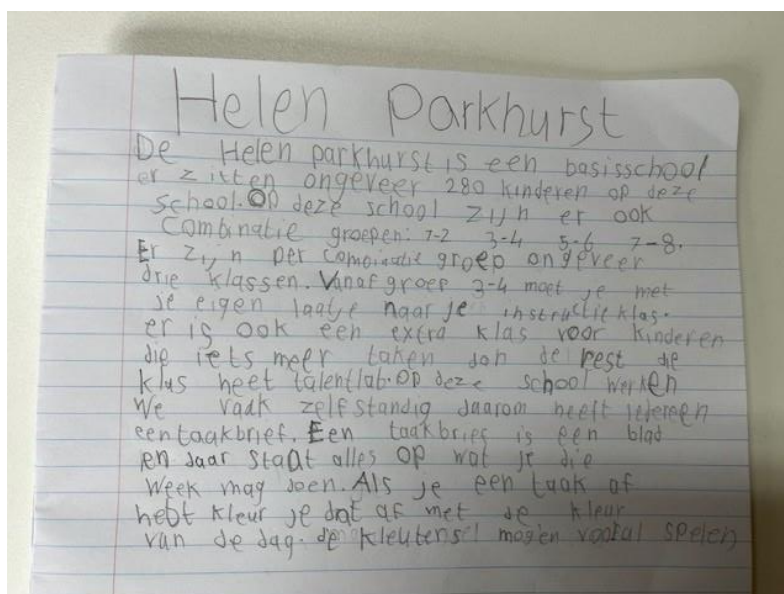 Helen Parkhurst
De Helen parkhurst is een basisschool
er zitten ongeveer 280 kinderen op deze
school. Op deze school zijn er ook
Combinatie groepen: 1-2 3-4 5-6 7-8.
Er zijn per combinatie groep ongeveer
drie klassen. Vanaf groep 3-4 moet je met
je eigen laatje naar je instructie klas.
er is ook een extra klas voor kinderen
die iets meer taken dan de rest die
klas heet talentlab. Op deze school werken
We vaak zelfstandig daarom heeft iedereen
een taakbrief. Een taakbrief is een blad
en daar staat alles op wat je die
week mag doen. Als je een taak af
hebt kleur je dat af met de kleur
van de dag. de mogen vooral spelen